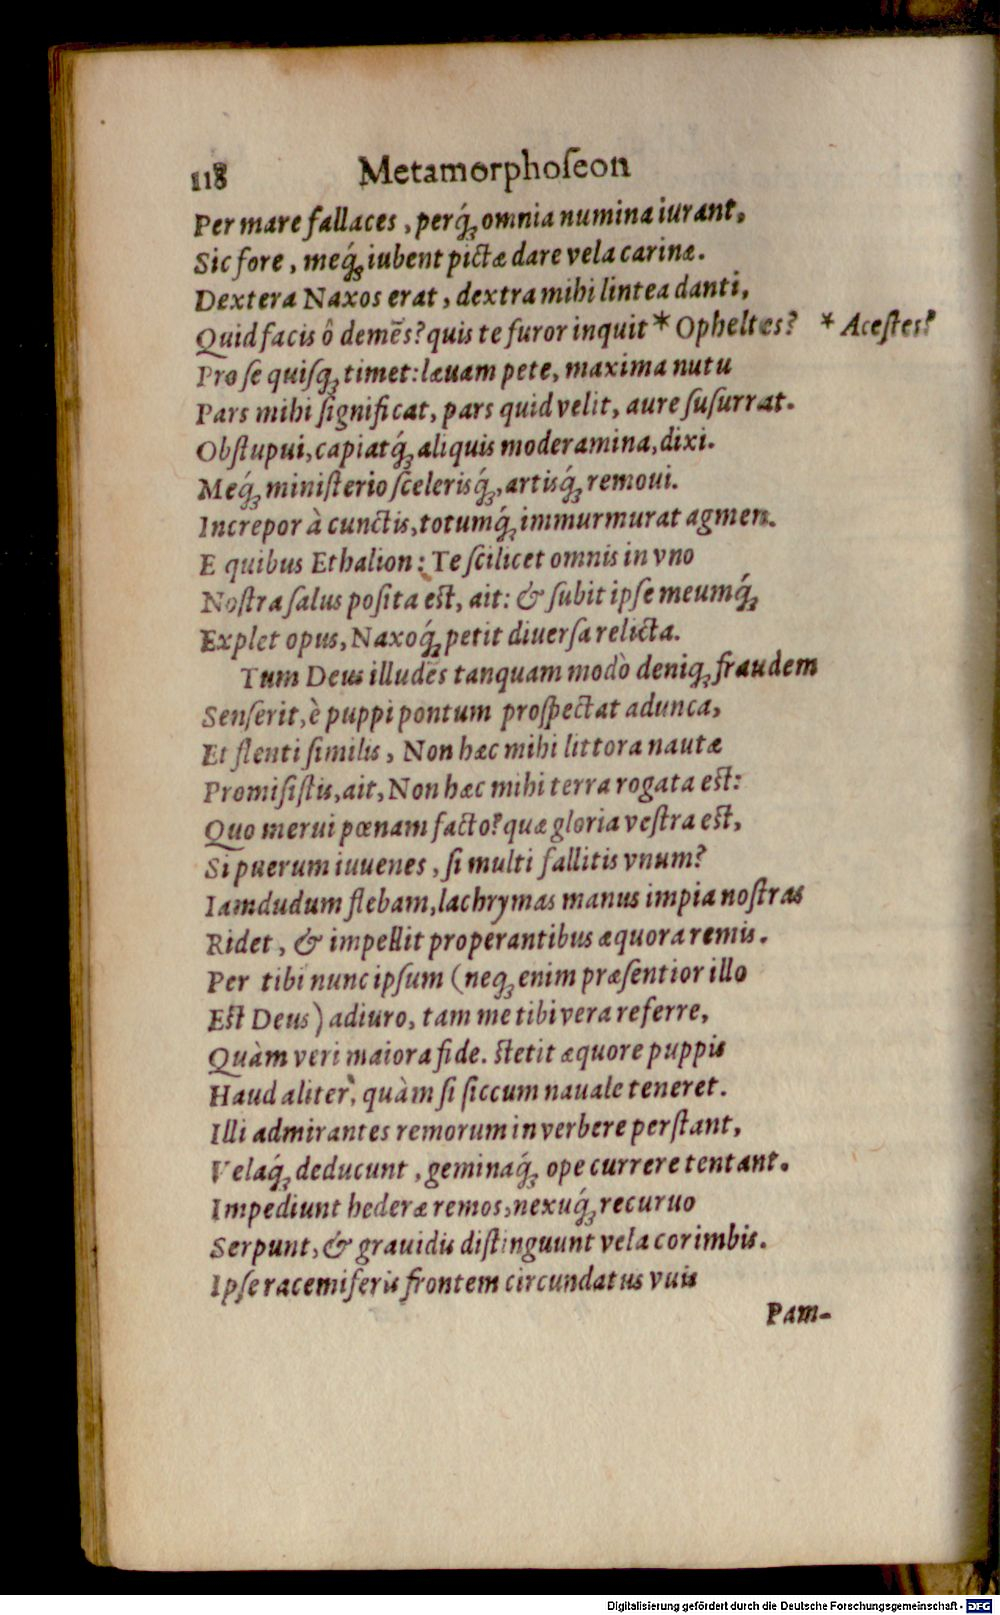 118 Metamorphoſeon
Per mare fallaces, perq́; omnia numina iurant,
Sic fore, meq́; iubent pictæ dare vela carinæ.
Dextera Naxos erat, dextra mihi lintea danti,
Quid facis ô demẽs? quis te furor inquit * Opheltes? * Aceſtes?
Pro ſe quiſq; timet: læuam pete, maxima nutu
Pars mihi ſignificat, pars quid velit, aure ſuſurrat.
Obſtupui, capiatq́; aliquis moderamina, dixi.
Meq́; miniſterio ſcelerisq́;, artisq́; remoui.
Increpor à cunctis, totumq́; immurmurat agmen.
E quibus Ethalion: Te ſcilicet omnis in vno
Noſtra ſalus poſita eſt, ait: & ſubit ipſe meumq́;
Explet opus, Naxoq́; petit diuerſa relicta.
Tum Deus illudẽs tanquam modò deniq; fraudem
Senſerit, è puppi pontum proſpectat adunca,
Et flenti ſimilis, Non hæc mihi littora nautæ
Promiſiſtis, ait, Non hæc mihi terra rogata eſt:
Quo merui pœnam facto? quæ gloria veſtra eſt,
Si puerum iuuenes, ſi multi fallitis vnum?
Iamdudum flebam, lachrymas manus impia noſtras
Ridet, & impellit properantibus æquora remis.
Per tibi nunc ipſum (neq; enim præſentior illo
Eſt Deus) adiuro, tam me tibi vera referre,
Quàm veri maiora fide. ſtetit æquore puppis
Haud aliter, quàm ſi ſiccum nauale teneret.
Illi admirantes remorum in verbere perſtant,
Velaq́; deducunt, geminaq́; ope currere tentant.
Impediunt hederæ remos, nexuq́; recuruo
Serpunt, & grauidis diſtinguunt vela corimbis.
Ipſe racemiferis frontem circundatus vuis
Pam-
Digitalisierung gefördert durch die Deutsche Forschungsgemeinschaft - DFG